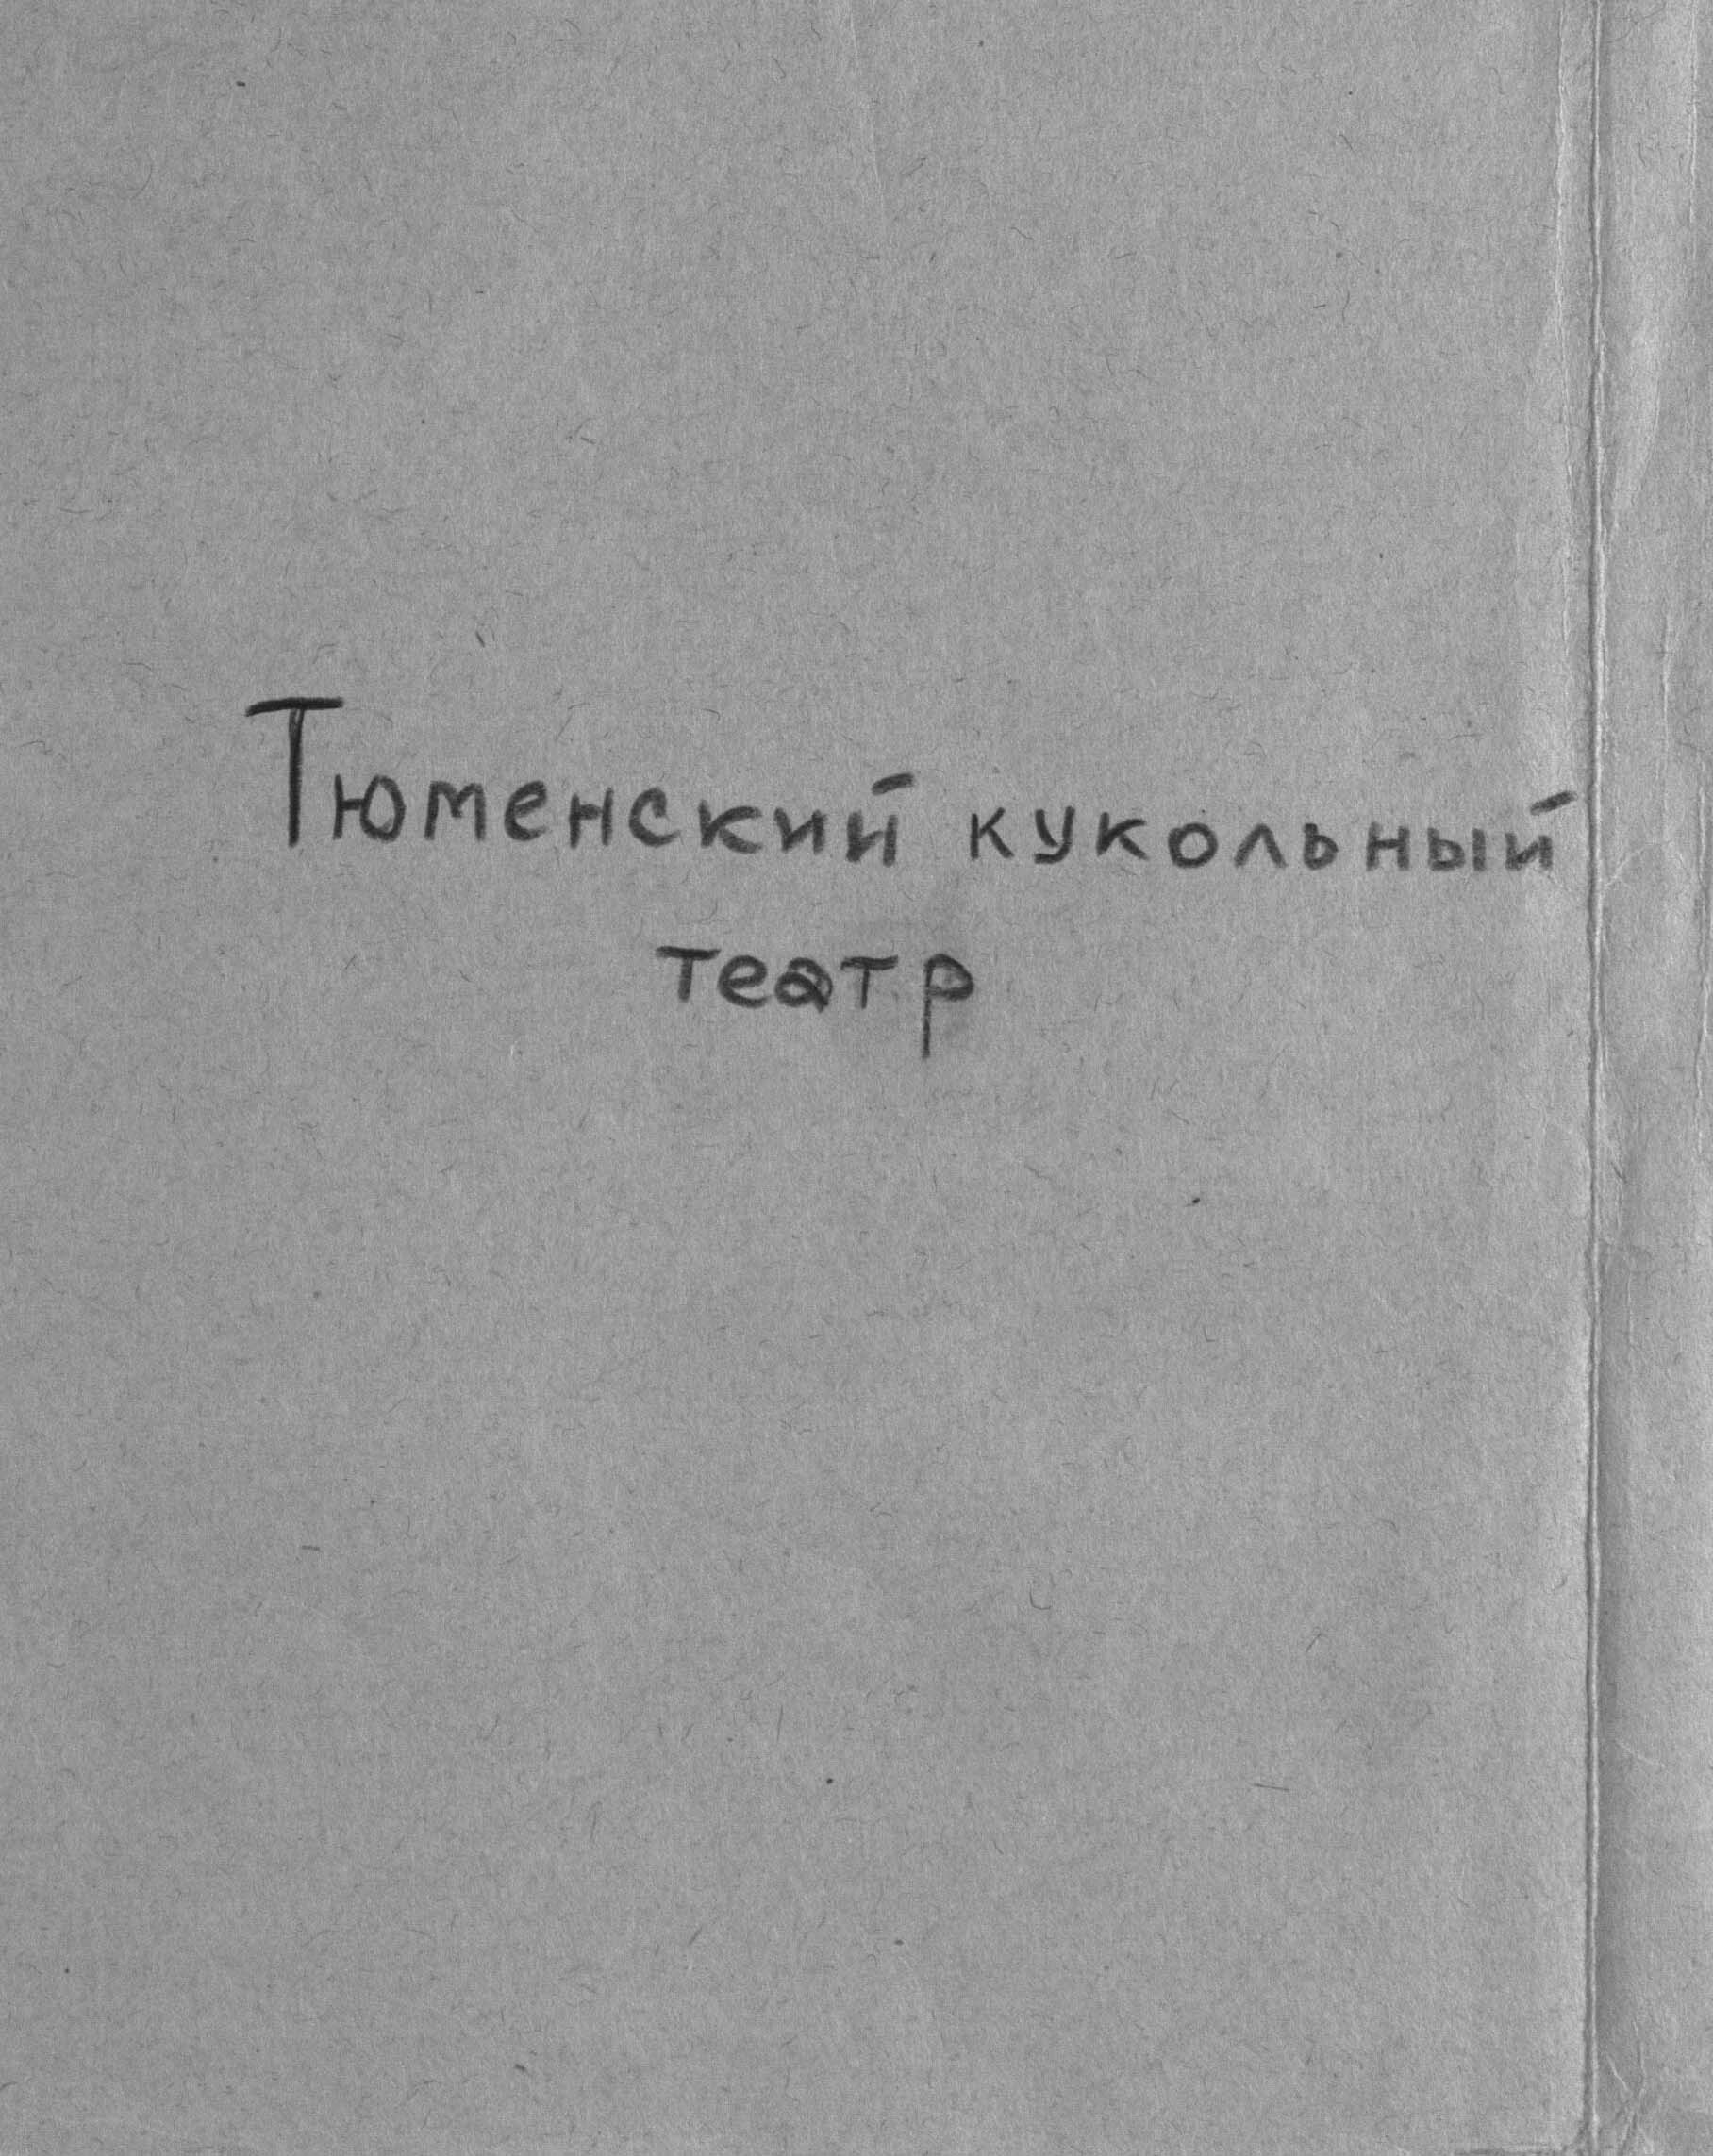 Тюменский кукольный
театр